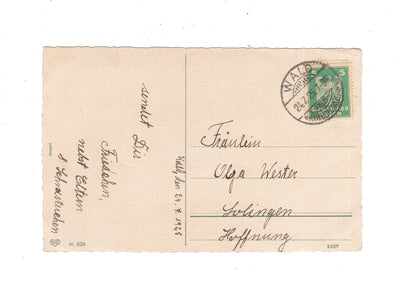 WALD
24.7.25
5
sendet Dir
Friedchen,
nebst Eltern
Wald, den 24.7.1925
Fräulein
Olga Wester
Solingen
Hoffnung
Nr. 420
2227